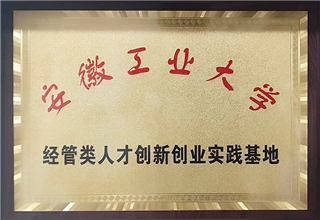 安徽工业大学
经管类人才创新创业实践基地